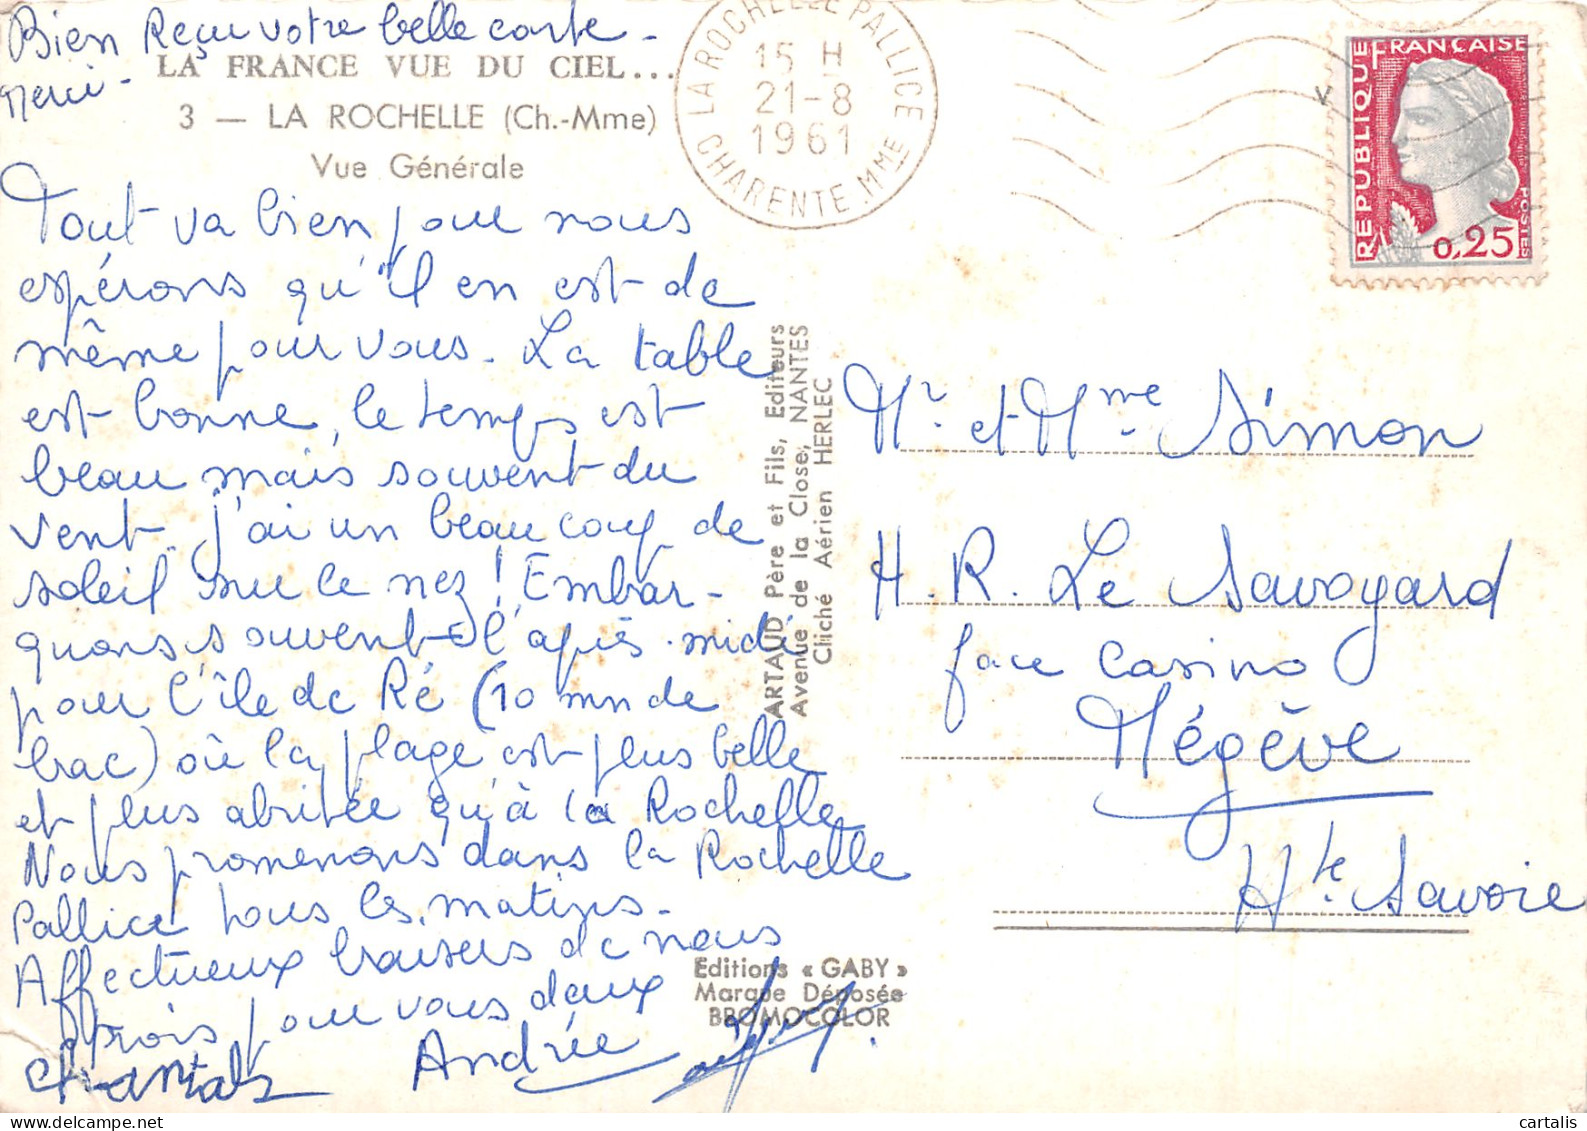 Bien Reçu votre belle carte -
Merci -
LA FRANCE VUE DU CIEL...
3 — LA ROCHELLE (Ch.-Mme)
Vue Générale
Tout va bien pour nous
espérons qu'il en est de
même pour vous. La table
est bonne, le temps est
beau mais souvent du
vent. j'ai un beau coup de
soleil sur le nez ! Embar-
quons souvent l'après-midi
pour l'île de Ré (10 mn de
bac) où la plage est plus belle
et plus abritée qu'à la Rochelle
Nous promenons dans la Rochelle
Pallice tous les matins.
Affectueux baisers de nous
trois pour vous deux
Chantal Andrée
LA ROCHELLE PALLICE
15 H
21-8
1961
CHARENTE MME
REPUBLIQUE FRANÇAISE
POSTES
0,25
ARTAUD Père et Fils, Editeurs
Avenue de la Close, NANTES
Cliché Aérien HERLEC
Mr et Mme Simon
H. R. Le Savoyard
face Casino
Mégève
Hte Savoie
Editions « GABY »
Marque Déposée
BROMOCOLOR
cartalis